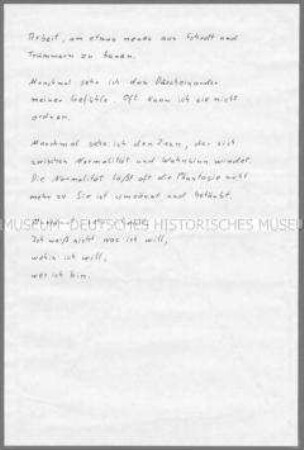 Arbeit, um etwas neues aus Schutt und
Trümmern zu bauen.
Manchmal sehe ich das Durcheinander
meiner Gefühle. Oft kann ich sie nicht
ordnen.
Manchmal sehe ich den Zaun, der sich
zwischen Normalität und Wahnsinn windet.
Die Normalität läßt oft die Phantasie nicht
mehr zu. Sie ist umzäunt und betäubt.
MUSEUM DEUTSCHES HISTORISCHES MUSEUM
Ich weiß nicht was ich will,
wohin ich will,
wer ich bin.